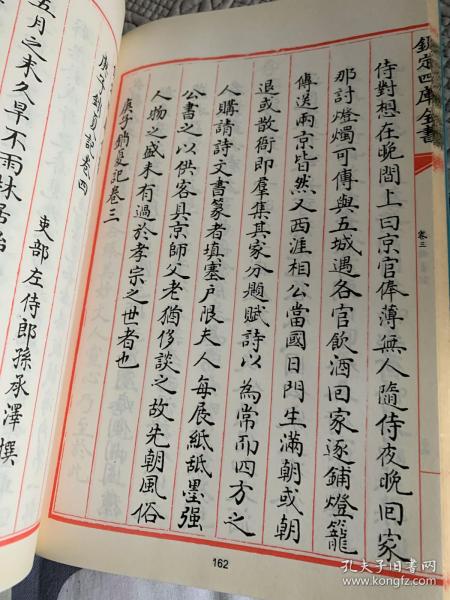 欽定四庫全書
卷三
侍對想在晚間上曰京官俸薄無人隨侍夜晚回家
那討燈燭可傳與五城遇各官飲酒回家逐鋪燈籠
傳送兩京皆然又西涯相公當國日門生滿朝或朝
退或散衙即羣集其家分題賦詩以為常而四方之
人購請詩文書篆者填塞戶限夫人每展紙舐墨强
公書之以供客具京師父老猶侈談之故先朝風俗
人物之盛未有過於孝宗之世者也
庚子銷夏記卷三
162
庚子銷夏記卷四
吏部左侍郎孫承澤撰
五月之末久旱不雨林居
孔夫子旧书网
www.kongfz.com